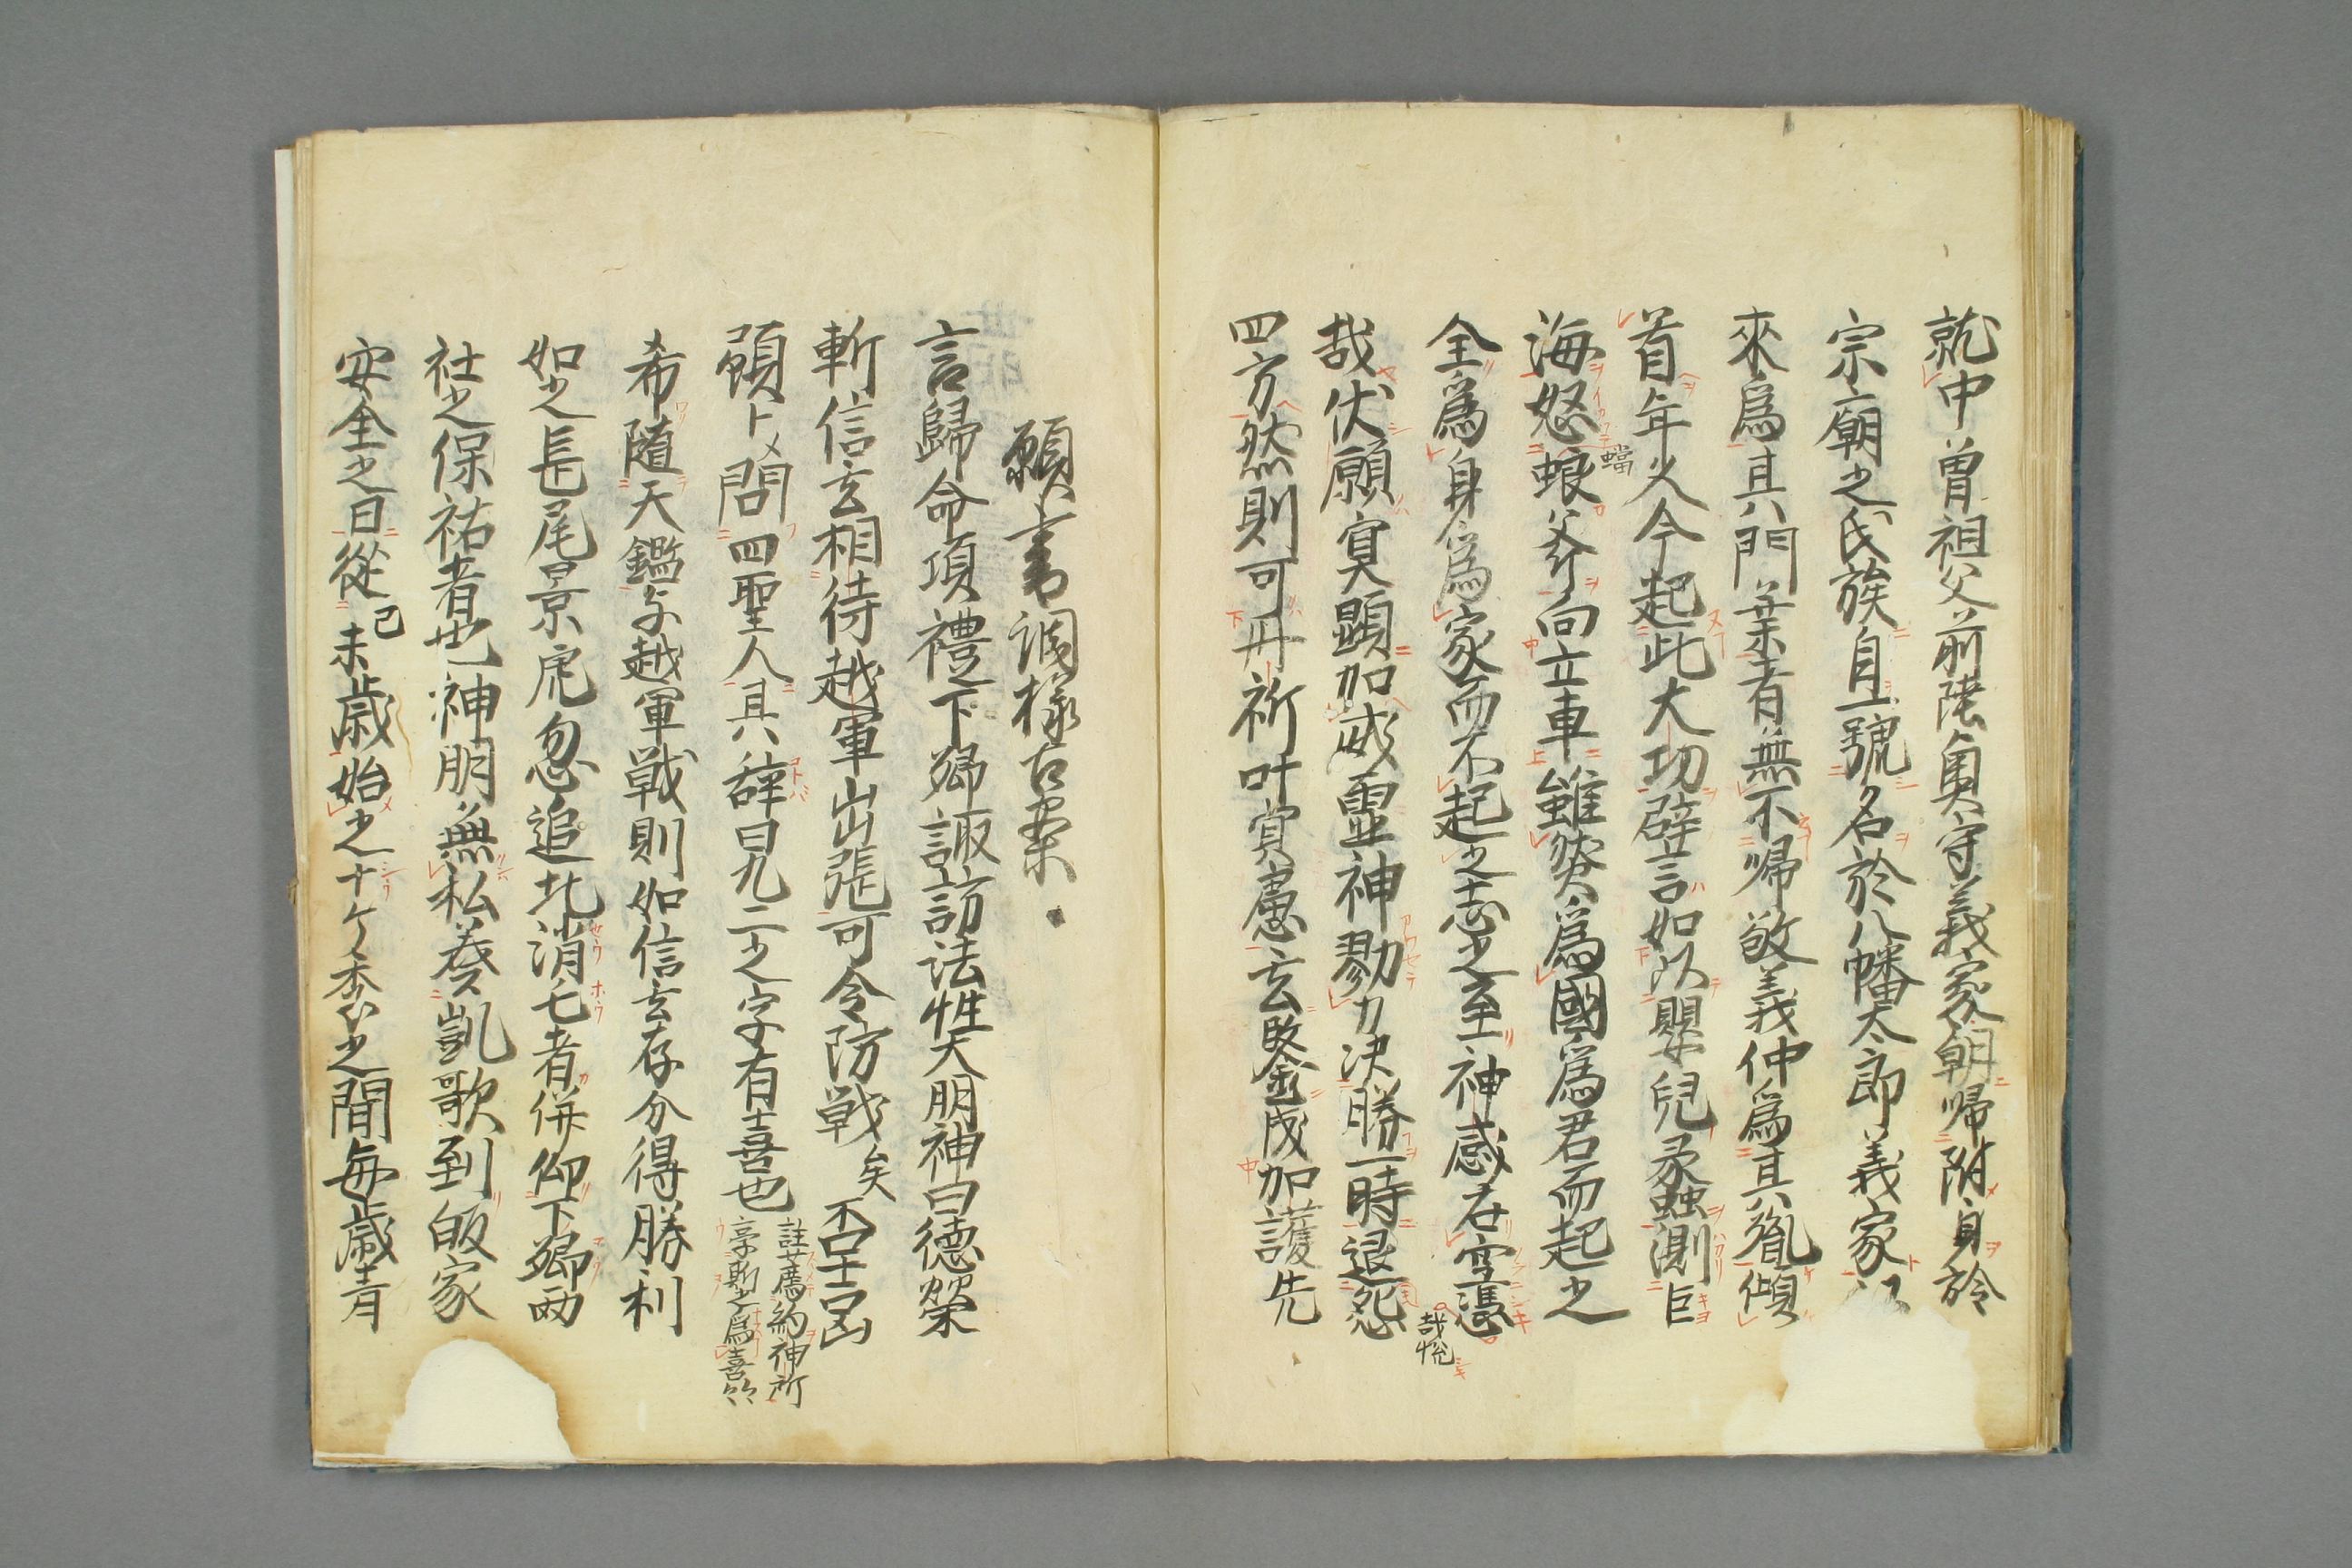 就中曽祖父前陸奥守義家朝帰附身於
宗廟之氏族自号名於八幡太郎義家以
來爲其門葉者無不帰敬義仲爲其胤傾
首年久今起此大功譬言如以嬰兒蠡測巨
海怒螂斧向立車雖然爲國爲君而起之
蟷
全爲身爲家而不起之志之至神感在空憑
哉悦
哉伏願冥顕加威霊神勠力決勝一時退怨
四方然則可丹祈叶冥慮玄鑒成加護先
願書調様古案
言歸命頂禮下郷諏訪法性大明神曰徳榮
軒信玄相待越軍出張可令防戦矣否吉凶
願卜〆問四聖人其辞曰九二之字有喜也
註薦約神所
享斯之爲喜
希随天鑑与越軍戦則如信玄存分得勝利
如之長尾景虎忽追北消亡者併仰下郷両
社之保祐者也神明無私奏凱歌到皈家
安全之日從己未歳始之十ケ季之間毎歳青